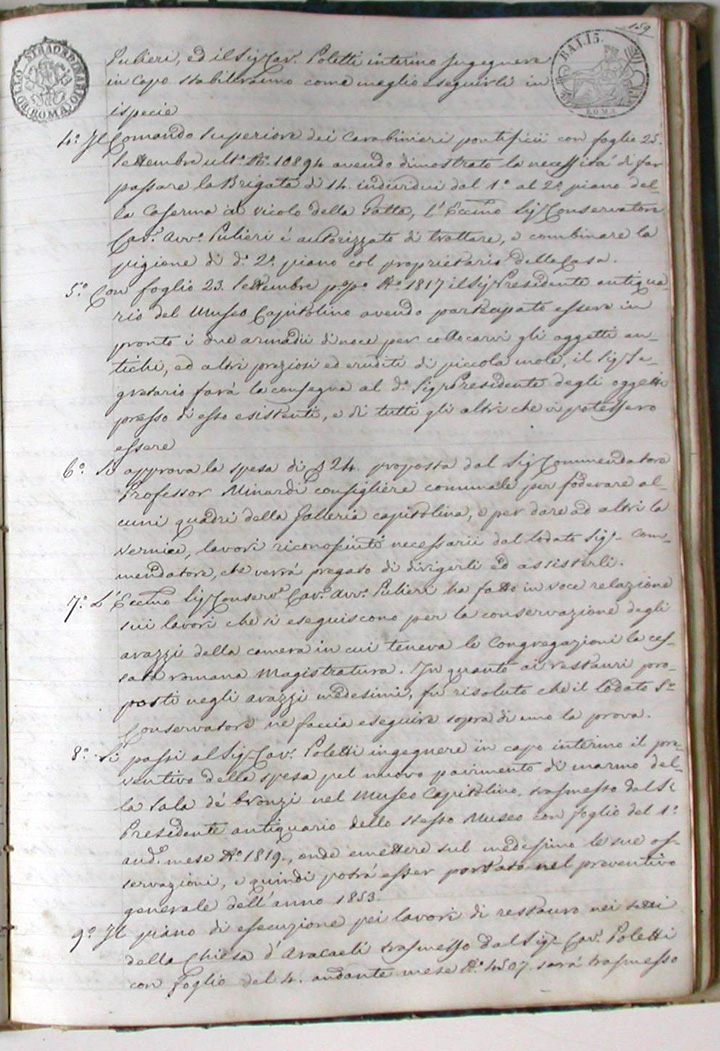 159
BOLLO STRAORDINARIO ROMA
BAI. 15.
ROMA
Pulieri, ed il Sig. Cav. Poletti interino Ingegnere
in Capo stabiliranno come meglio eseguirli in
ispecie
4.° Il Comando Superiore dei Carabinieri pontificii con foglio 25.
Settembre ult.° N.° 10894 avendo dimostrato la necessità di far
passare la Brigata di 14. individui dal 1.° al 2.° piano del-
la Caserma a vicolo della Gatta, l'Eccmo Sig. Conservatore
Cav.e Avv.o Pulieri è autorizzato di trattare, e combinare la
pigione di d.° 2.° piano col proprietario della Casa.
5.° Con foglio 23. Settembre p.°p.° N.° 1817 il Sig. Presidente antiqua-
rio del Museo Capitolino avendo partecipato essere in
pronto i due armadii di noce per collocarvi gli oggetti an-
tichi, ed altri preziosi ed eruditi di piccola mole, il Sig. Se-
gretario farà la consegna al d.° Sig. Presidente degli oggetti
presso di esso esistenti, e di tutti gli altri che vi potessero
essere
6.° Si approva la spesa di $ 24. proposta dal Sig. Commendatore
Professor Minardi consigliere comunale per foderare al-
cuni quadri della Galleria capitolina, e per dare ad altri la
vernice, lavori riconosciuti necessarii dal lodato Sig. Com-
mendatore, che verrà pregato di dirigerli ed assisterli.
7.° L'Eccmo Sig. Conserv.e Cav.e Avv.o Pulieri ha fatto in voce relazione
sui lavori che si eseguiscono per la conservazione degli
arazzi della camera in cui teneva le Congregazioni la ces-
sata romana Magistratura. In quanto ai restauri pro-
posti negli arazzi medesimi, fu risoluto che il lodato S.r
Conservatore ne faccia eseguire sopra di uno la prova.
8.° Si passi al Sig. Cav. Poletti ingegnere in capo interino il pre-
ventivo della spesa pel nuovo pavimento di marmo del-
la Sala de' bronzi nel Museo Capitolino, trasmesso dal S.r
Presidente antiquario dello stesso Museo con foglio del 1.°
and.e mese N.° 1819., onde emettere sul medesimo le sue os-
servazioni, e quindi potrà esser portato nel preventivo
generale dell'anno 1853.
9.° Il piano di esecuzione pei lavori di restauro nei tetti
della Chiesa d'Aracaeli trasmesso dal Sig. Cav. Poletti
con foglio del 4. andante mese N.° 4507. sarà trasmesso